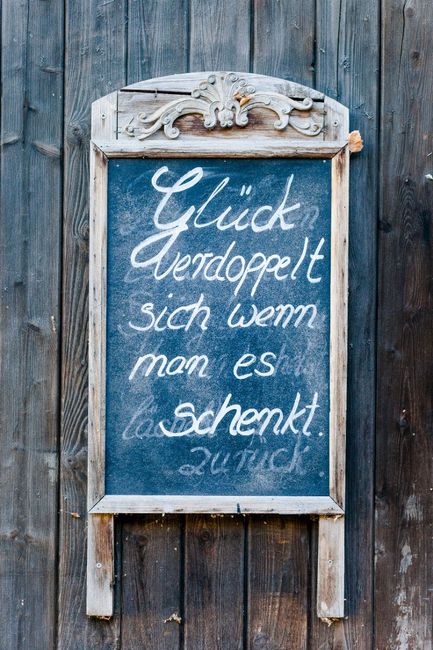 Glück
verdoppelt
sich wenn
man es
schenkt.
zurück